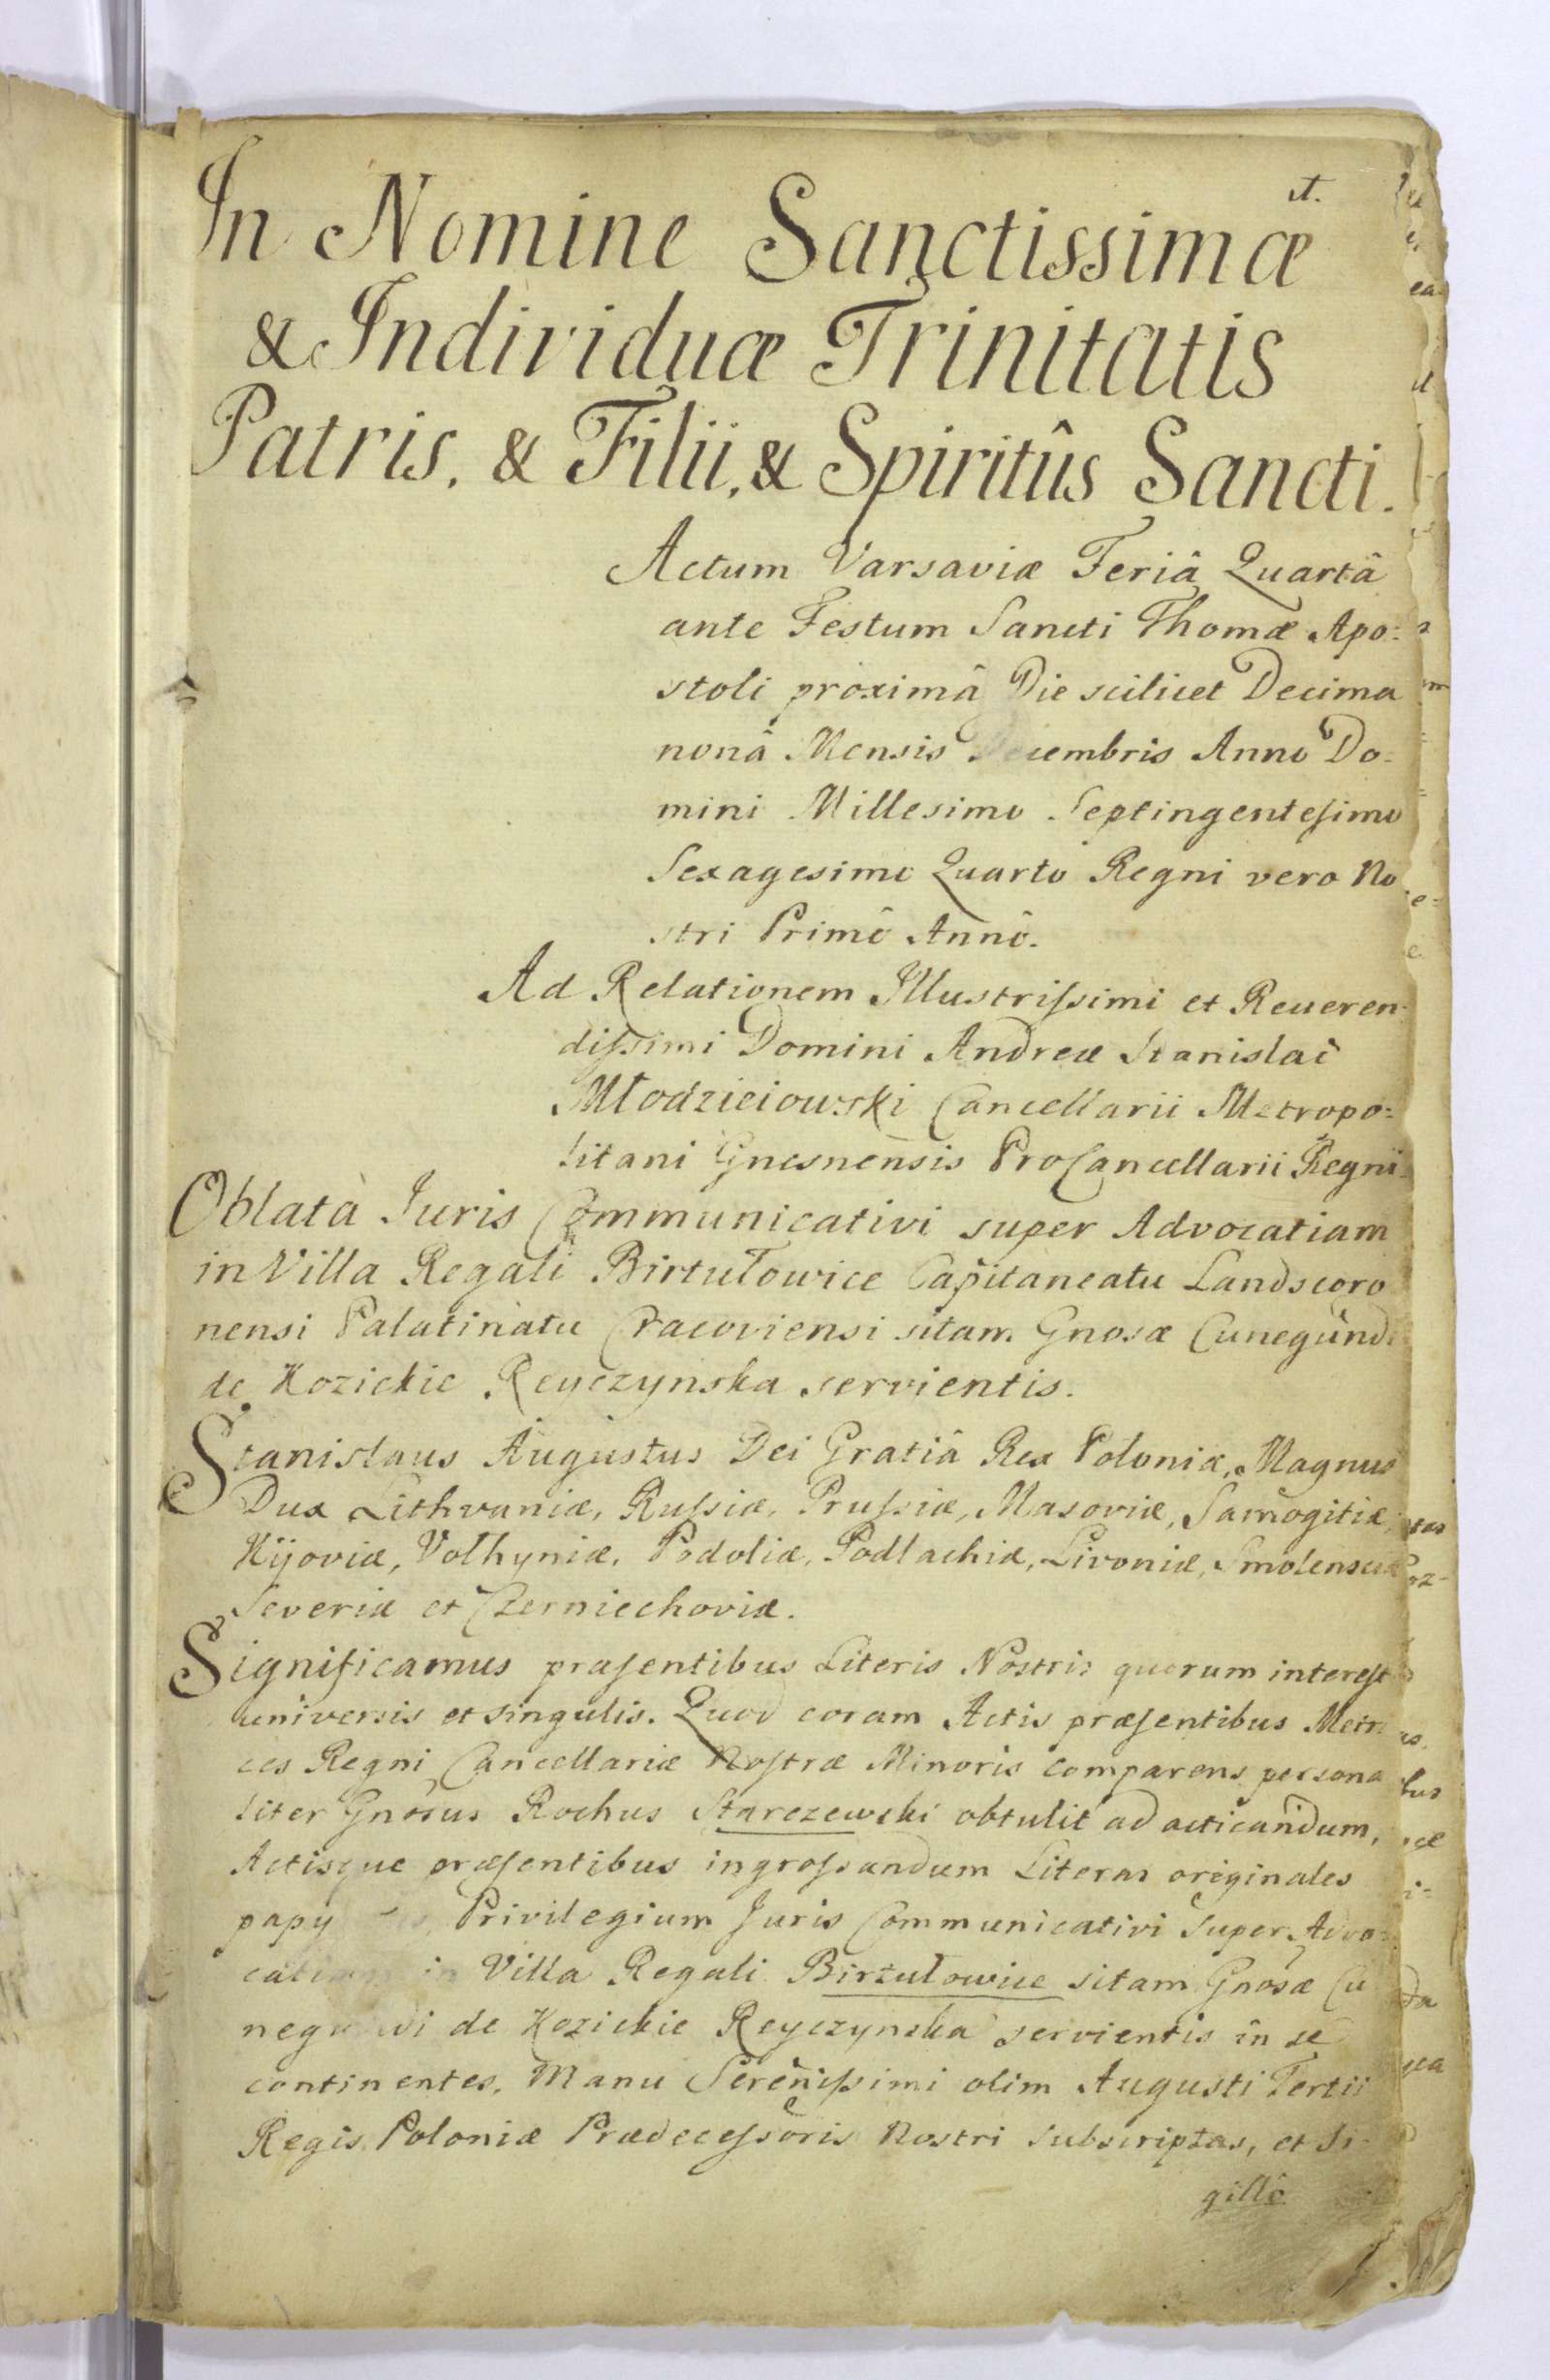 A.
In Nomine Sanctissimæ
& Individuæ Trinitatis
Patris, & Filii, & Spiritûs Sancti.
Actum Varsaviæ Feriâ Quartâ
ante Festum Sancti Thomæ Apo:
stoli proximâ Die scilicet Decima
nonâ Mensis Decembris Anno Do-
mini Millesimo Septingentesimo
Sexagesimo Quarto Regni vero No
stri Primô Annô.
Ad Relationem Illustrissimi et Reueren-
dissimi Domini Andreæ Stanislai
Młodzieiowski Cancellarii Metropo:
litani Gnesnensis ProCancellarii Regni.
Oblata Iuris Communicativi super Advocatiam
in Villa Regali Birtułowice Capitaneatu Landscoro
nensi Palatinatu Cracoviensi sitam Gnosæ Cunegundi
de Kozickie Reyczynska servientis.
Stanislaus Augustus Dei Gratiâ Rex Poloniæ, Magnus
Dux Lithvaniæ, Russiæ, Prussiæ, Masoviæ, Samogitiæ,
Kijoviæ, Volhyniæ, Podoliæ, Podlachiæ, Livoniæ, Smolensciæ
Severiæ et Czerniechoviæ.
Significamus præsentibus Literis Nostris quorum interest
universis et singulis. Quod coram Actis præsentibus Metri
ces Regni Cancellariæ Nostræ Minoris comparens persona
liter Gnosus Rochus Starczewski obtulit ad acticandum,
Actisque præsentibus ingrossandum Literas originales
papy Privilegium Juris Communicativi super Advo:
catiam in Villa Regali Birżułowice sitam Gnosæ Cu
negundi de Kozickie Reyczynska servientis in se
continentes, Manu Serenissimi olim Augusti Tertii
Regis Poloniæ Prædecessoris Nostri subscriptas, et Si-
gillô